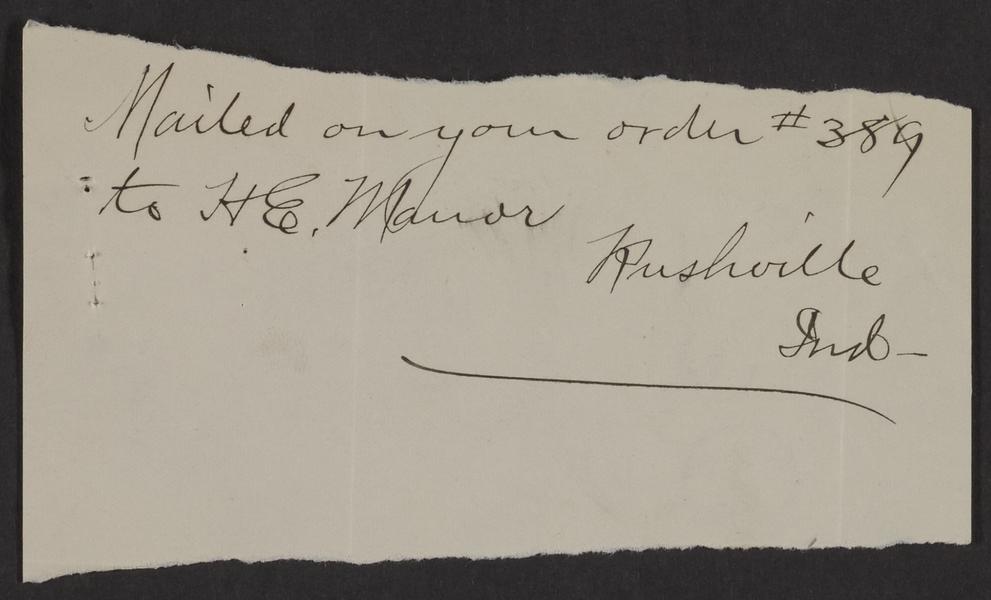 Mailed on your order #389
to H.E. Manor
Rushville
Ind-